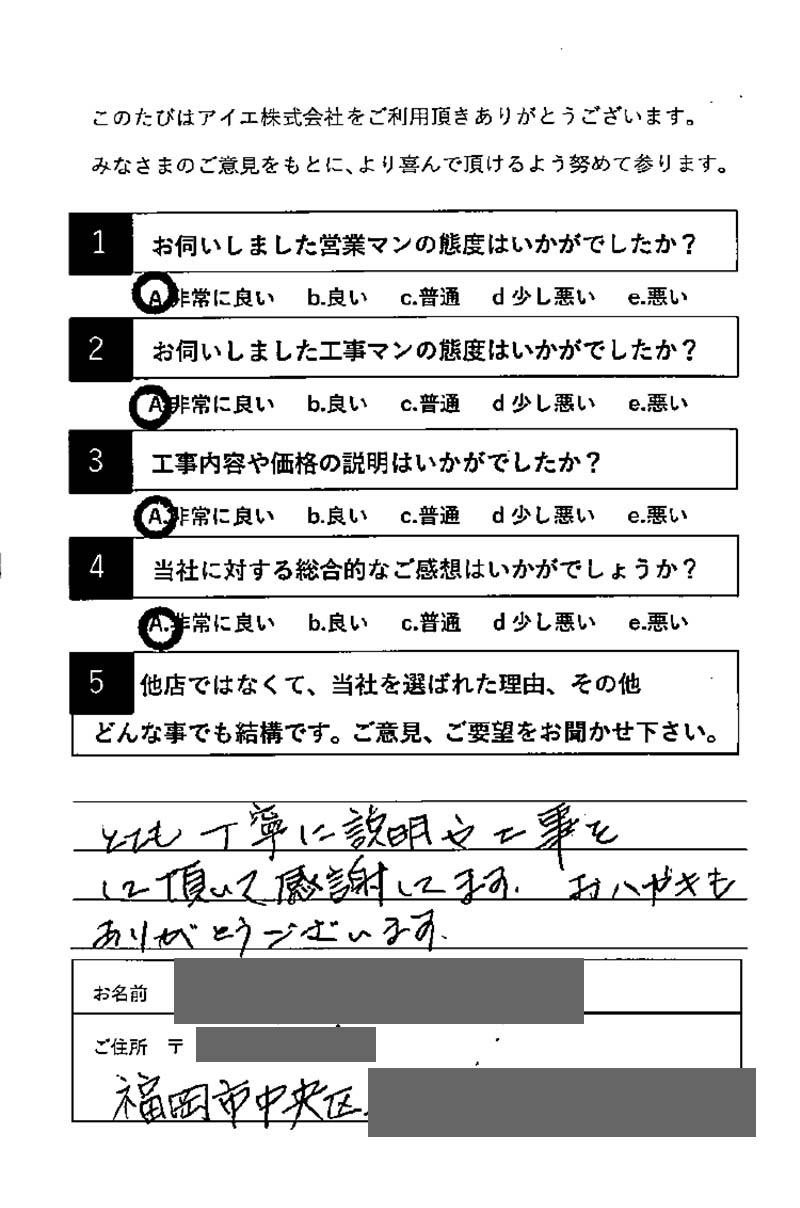 このたびはアイエ株式会社をご利用頂きありがとうございます。
みなさまのご意見をもとに、より喜んで頂けるよう努めて参ります。
1 お伺いしました営業マンの態度はいかがでしたか？
A.非常に良い b.良い c.普通 d 少し悪い e.悪い
2 お伺いしました工事マンの態度はいかがでしたか？
A.非常に良い b.良い c.普通 d 少し悪い e.悪い
3 工事内容や価格の説明はいかがでしたか？
A.非常に良い b.良い c.普通 d 少し悪い e.悪い
4 当社に対する総合的なご感想はいかがでしょうか？
A.非常に良い b.良い c.普通 d 少し悪い e.悪い
5 他店ではなくて、当社を選ばれた理由、その他
どんな事でも結構です。ご意見、ご要望をお聞かせ下さい。
とても丁寧に説明や工事を
して頂いて感謝してます. おハガキも
ありがとうございます.
お名前
ご住所 〒
福岡市中央区